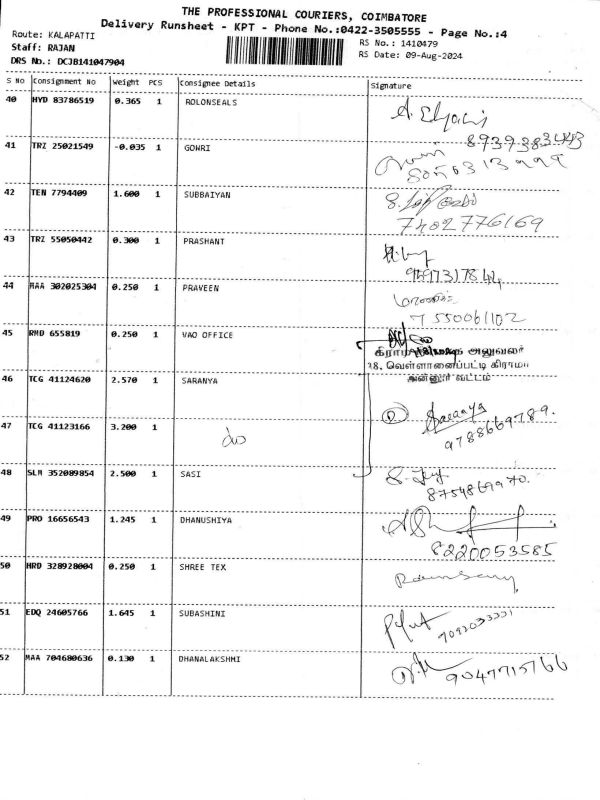 THE PROFESSIONAL COURIERS, COIMBATORE
Delivery Runsheet - KPT - Phone No.:0422-3505555 - Page No.:4
Route: KALAPATTI
RS No.: 1410479
Staff: RAJAN
RS Date: 09-Aug-2024
DRS No.: DCJB141047904
S No Consignment No Weight PCS Consignee Details Signature
40 HYD 83786519 0.365 1 ROLONSEALS
41 TRZ 25021549 -0.035 1 GOWRI
42 TEN 7794409 1.600 1 SUBBAIYAN
7402776169
43 TRZ 55050442 0.300 1 PRASHANT
44 MAA 302025304 0.250 1 PRAVEEN
7550061102
45 RMD 655819 0.250 1 VAO OFFICE
கிராம அலுவலர்
வெள்ளானைப்பட்டி கிராம
அன்னூர் வட்டம்
46 TCG 41124620 2.570 1 SARANYA
Saranya
9788669789.
47 TCG 41123166 3.200 1
48 SLM 352089854 2.500 1 SASI
8754869970.
49 PRO 16656543 1.245 1 DHANUSHIYA
8220053585
50 HRD 328928004 0.250 1 SHREE TEX
51 EDQ 24605766 1.645 1 SUBASHINI
52 MAA 704680636 0.130 1 DHANALAKSHMI
9047715766